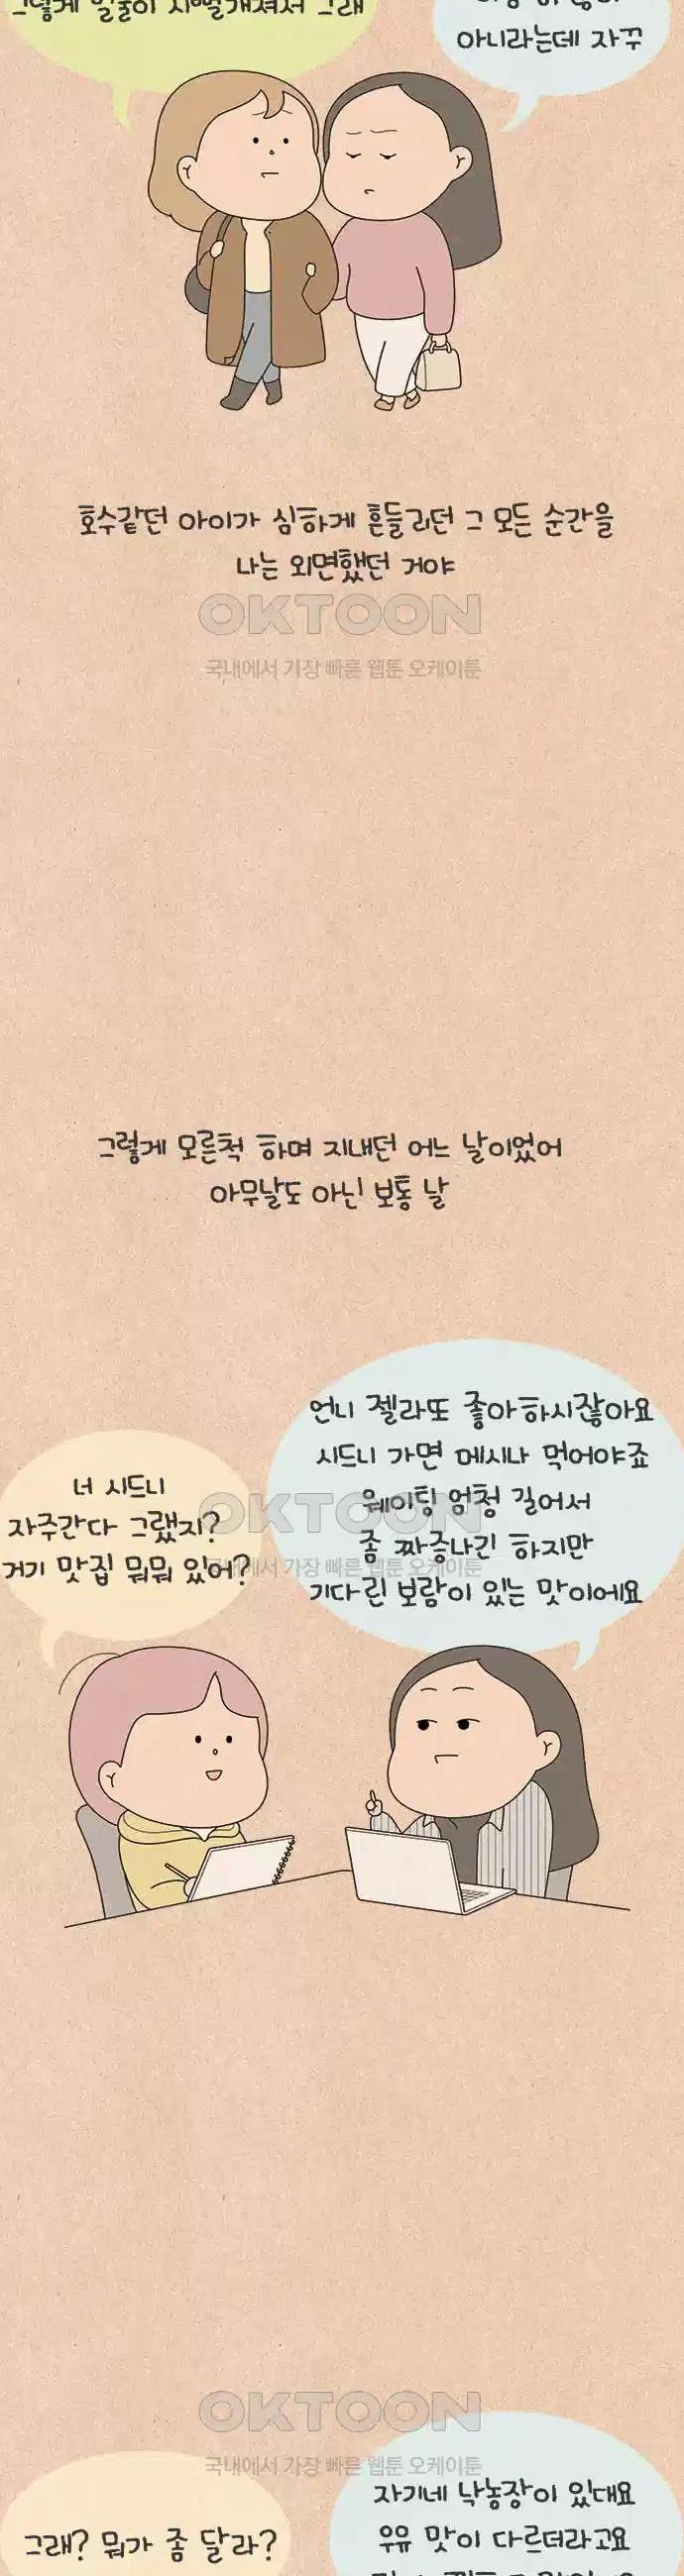 그렇게 얼굴이 시뻘개져서 그래
아니라는데 자꾸
호수같던 아이가 심하게 흔들리던 그 모든 순간을
나는 외면했던 거야
OKTOON
국내에서 가장 빠른 웹툰 오케이툰
그렇게 모른척 하며 지내던 어느 날이었어
아무날도 아닌 보통 날
언니 젤라또 좋아하시잖아요
시드니 가면 메시나 먹어야죠
웨이팅 엄청 길어서
좀 짜증나긴 하지만
기다린 보람이 있는 맛이에요
너 시드니
자주간다 그랬지?
거기 맛집 뭐뭐 있어?
OKTOON
국내에서 가장 빠른 웹툰 오케이툰
OKTOON
국내에서 가장 빠른 웹툰 오케이툰
그래? 뭐가 좀 달라?
자기네 낙농장이 있대요
우유 맛이 다르더라고요